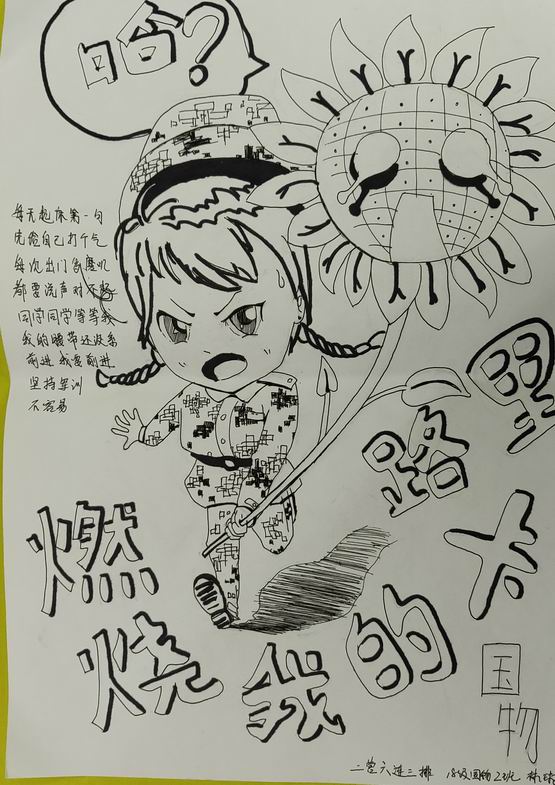 哈?
每天起床第一句
先给自己打个气
每次出门多磨叽
都要说声对不起
同学同学等等我
我的腰带还没系
前进 我要前进
坚持军训
不容易
燃烧我的卡路里
国物
二营六连三排 18级国物2班 林